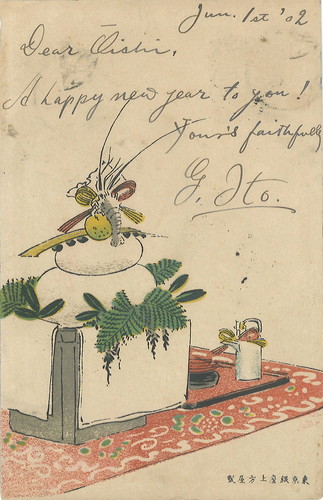 Jan. 1st '02
Dear Oishi,
A happy new year to you!
Your's faithfully
G. Ito.
東京銀座上方屋製